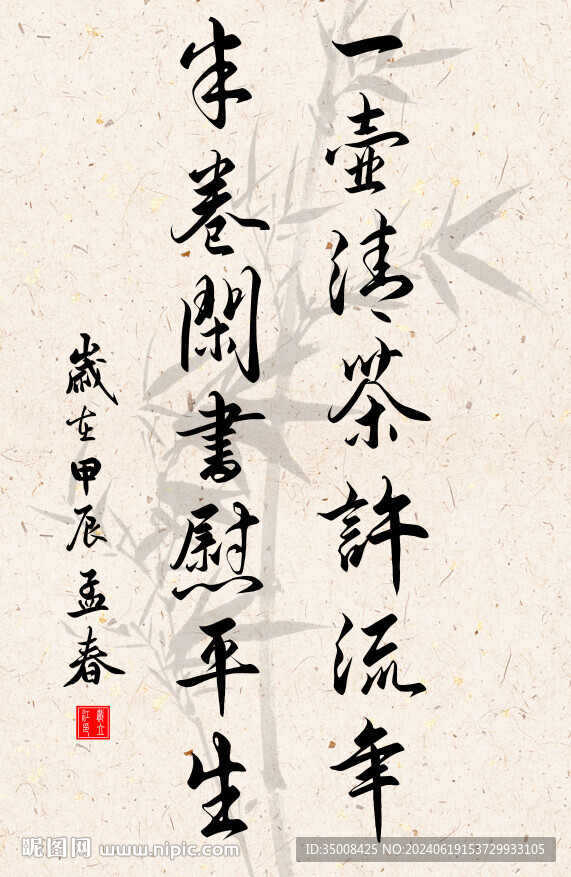 一壷清茶許流年
半卷閑書慰平生
歲在甲辰孟春
昵图网 www.nipic.com
ID:35008425 NO:20240619153729933105